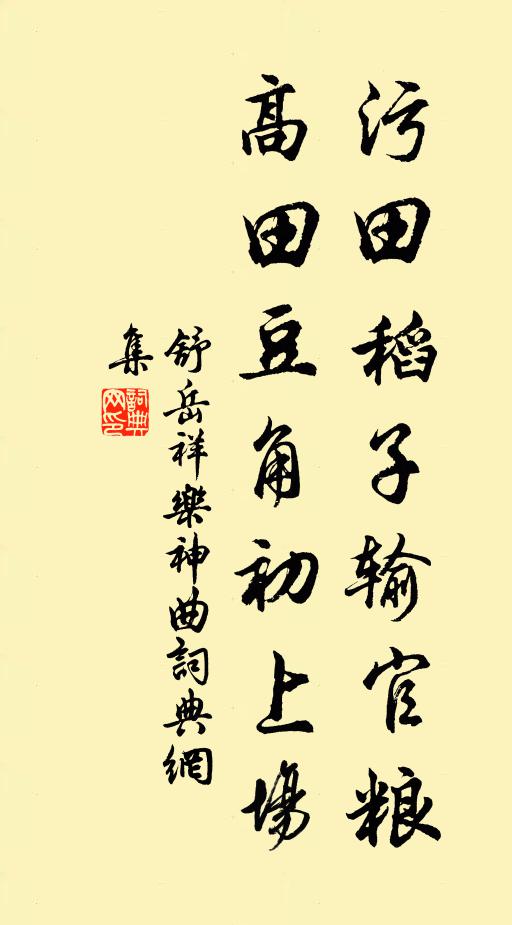 污田稻子输官粮
高田豆角初上場
舒岳祥樂神曲詞典網
集
詞典網印